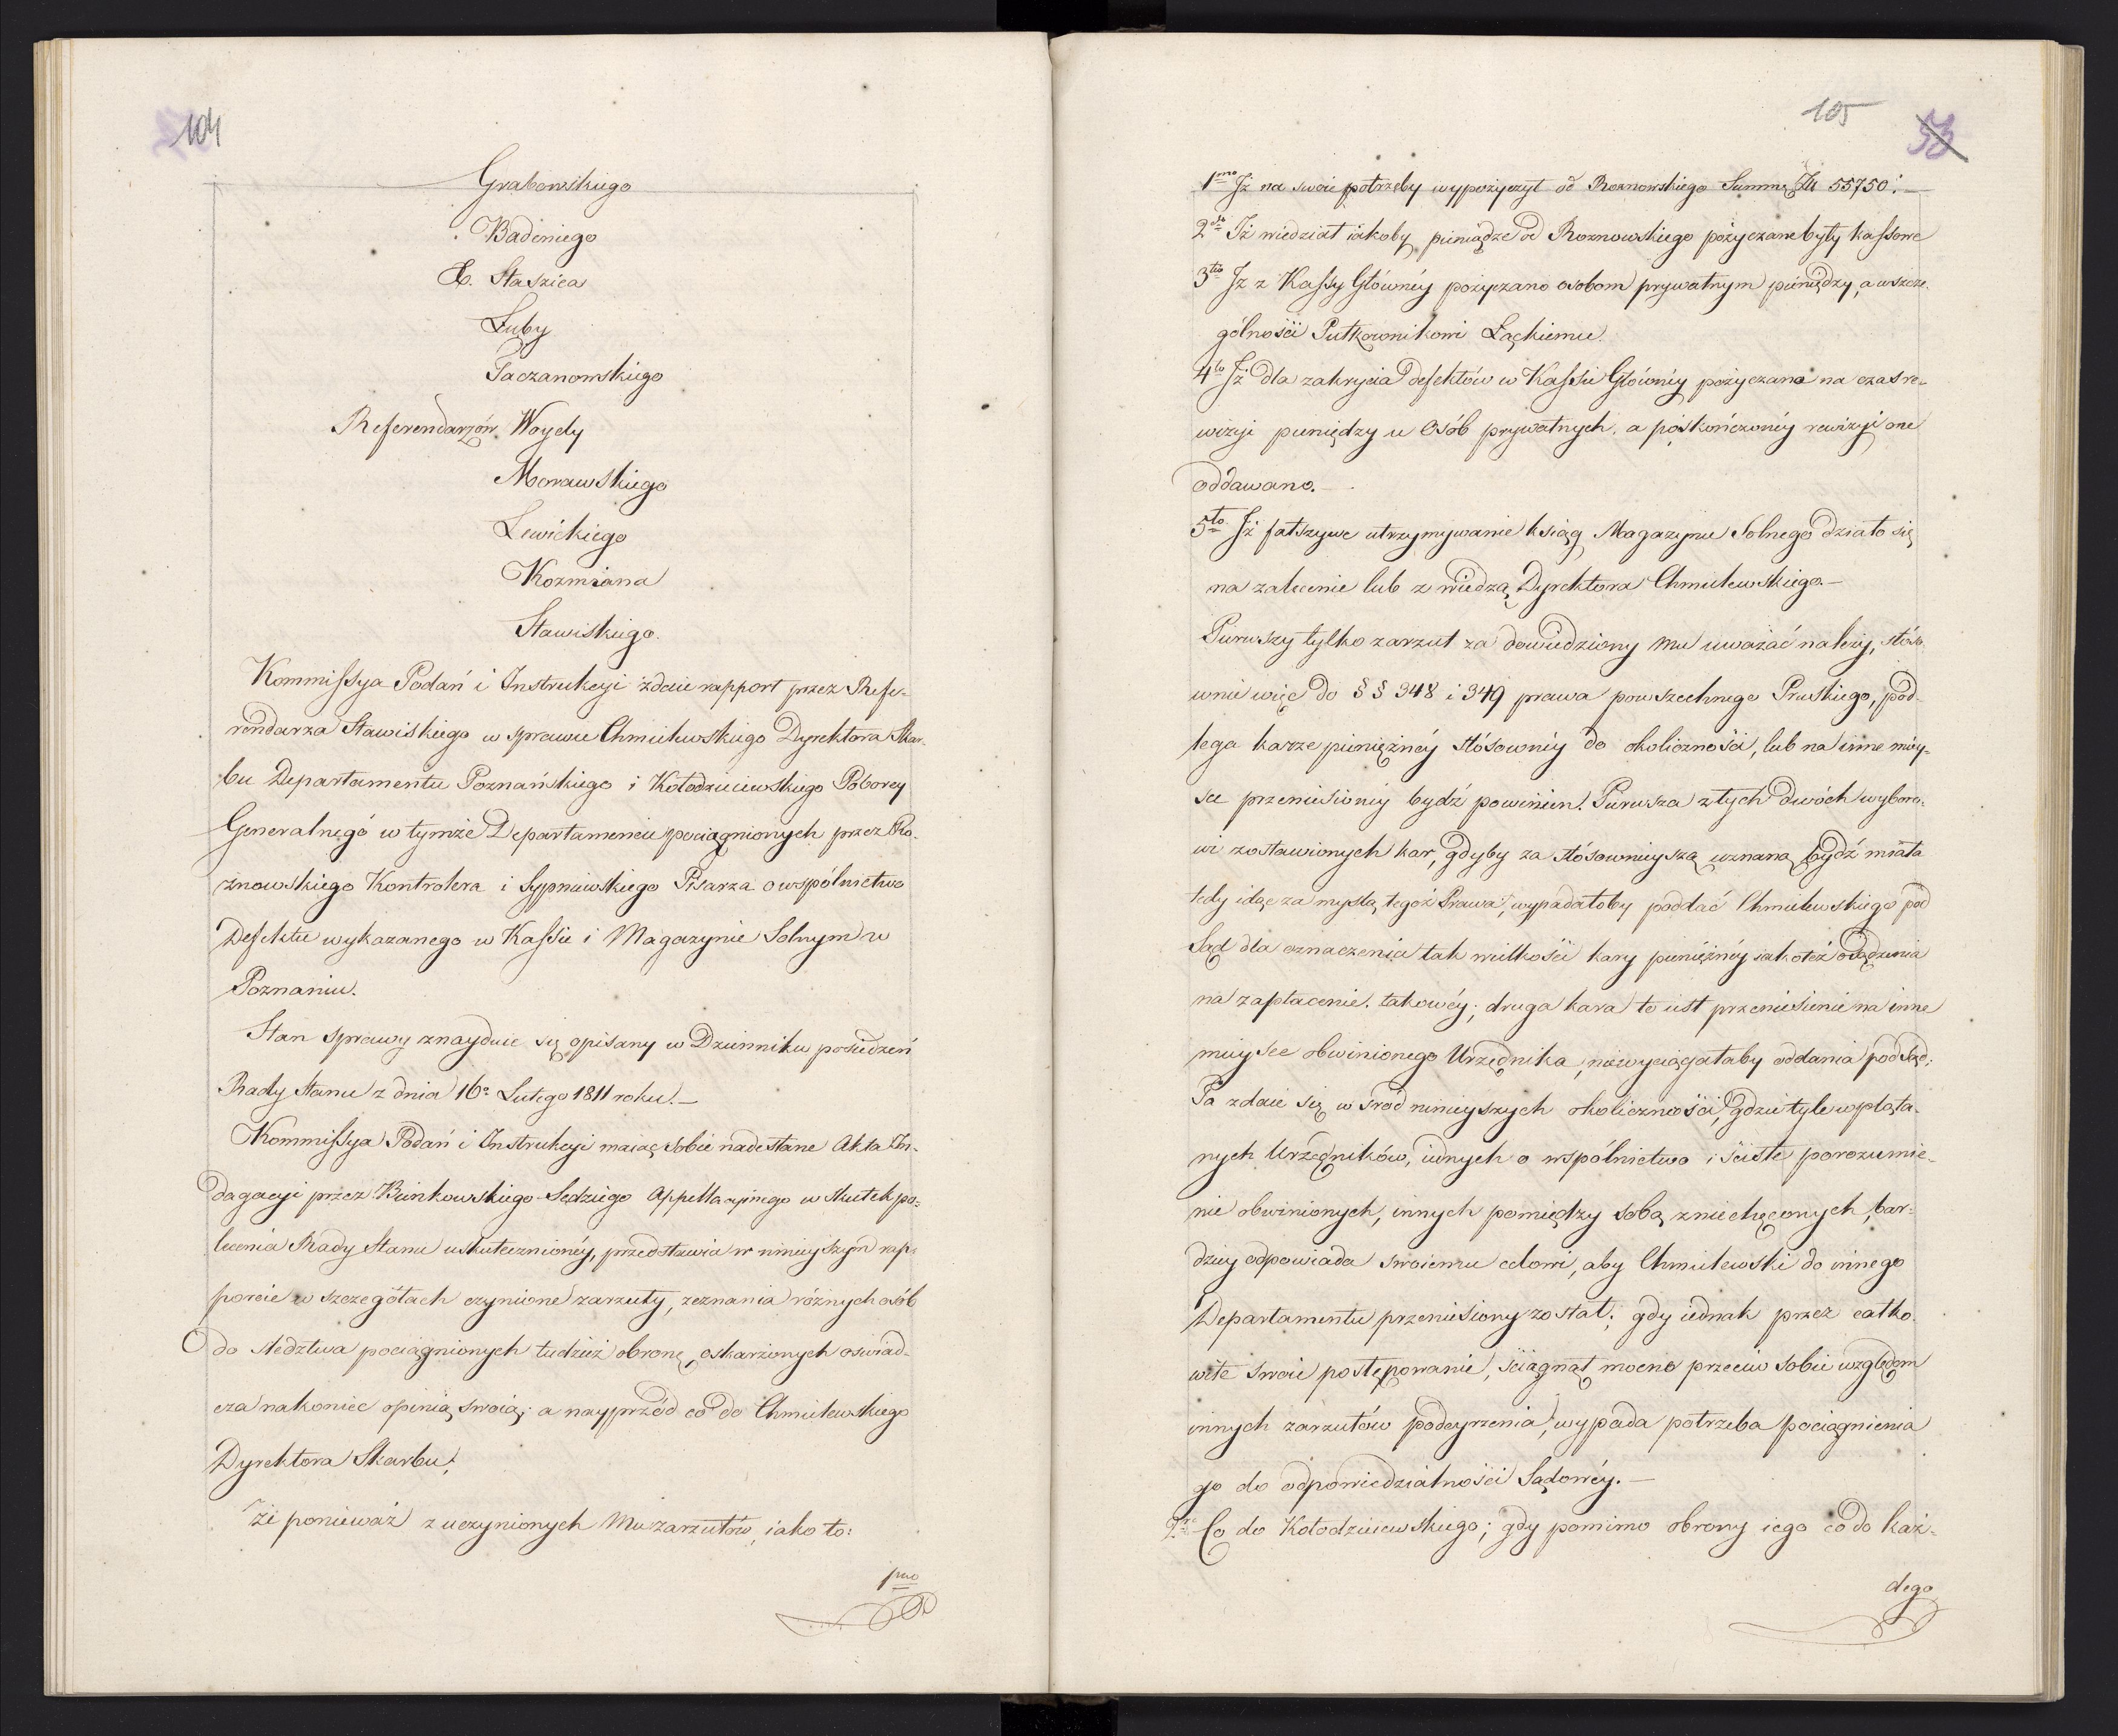 104
Grabowskiego
Badeniego
X. Staszica
Łuby
Taczanowskiego
Referendarzów. Woydy
Morawskiego
Lewickiego
Kozmiana
Stawiskiego.
Kommissya Podań i Instrukcyi zdaie rapport przez Refe-
rendarza Stawiskiego w sprawie Chmielewskiego Dyrektora Skar-
bu Departamentu Poznańskiego i Kołodzieiewskiego Poborcy
Generalnego w tymże Departamencie pociągnionych przez Ro-
znowskiego Kontrolera i Sypniewskiego Pisarza o wspólnictwo
Defektu wykazanego w Kassie i Magazynie Solnym w
Poznaniu.
Stan sprawy znayduie się opisany w Dzienniku posiedzeń
Rady Stanu z dnia 16º Lutego 1811 roku.—
Kommissya Podań i Instrukcyi maiąc sobie nadesłane Akta In-
dagacyi przez Bienkowskiego Sędziego Appellacyinego w skutek po-
lecenia Rady Stanu uskutecznionéy, przedstawia w ninieyszym rap-
porcie w szczegółach czynione zarzuty, zeznania różnych osób
do śledztwa pociągnionych tudzież obronę oskarżonych oświad-
cza nakoniec opinią swoią; a nayprzód co do Chmielewskiego
Dyrektora Skarbu;
że ponieważ z uczynionych Mu zarzutów, iako to:
1mo
105
53
1mo Jż na swoie potrzeby wypożyczył od Roznowskiego Summę Zł 55750.—
2do Jż wiedział iakoby pieniądze od Roznowskiego pożyczane były kassowe
3tio Jż z Kassy Głównéy pożyczano osobom prywatnym pieniędzy, a wszcze-
gólności Pułkownikowi Łąckiemu.
4to Jż dla zakrycia defektów w Kassie Głównéy pożyczano na czas re-
wizyi pieniędzy u Osób prywatnych, a po skończonéy rewizyi one
oddawano.—
5to Jż fałszywe utrzymywanie ksiąg Magazynu Solnego działo się
na zalecenie lub z wiedzą Dyrektora Chmielewskiego.—
Pierwszy tylko zarzut za dowiedziony mu uważać należy, stóso-
wnie więc do §§ 348 i 349 prawa powszechnego Pruskiego, pod-
lega karze pieniężnéy stósownéy do okoliczności, lub na inne miey-
sce przeniesiony bydź powinien. Pierwsza z tych dwóch wyboro-
wi zostawionych kar, gdyby za stósownieyszą uznaną bydź miała
tedy idąc za myslą tegoż Prawa, wypadałoby poddać Chmielewskiego pod
Sąd dla oznaczenia tak wielkości kary pieniężnéy iako też osądzenia
na zapłacenie takowéy; druga kara to iest przeniesienie na inne
mieysce obwinionego Urzędnika, niewyciągałaby oddania pod Sąd;
Ta zdaie się w śród ninieyszych okoliczności, gdzie tyle wpląta-
nych Urzędników, iednych o wspólnictwo i ścisłe porozumie-
nie obwinionych, innych pomiędzy sobą zniechęconych, bar-
dziey odpowiada swoiemu celowi, aby Chmielewski do innego
Departamentu przeniesiony został; gdy iednak przez całko-
wite swoie postępowanie, ściągnął mocno przeciw sobie względem
innych zarzutów podeyrzenia, wypada potrzeba pociągnienia
go do odpowiedzialności Sądowéy.—
Co do Kołodzieiewskiego; gdy pomimo obrony iego co do każ-
dego